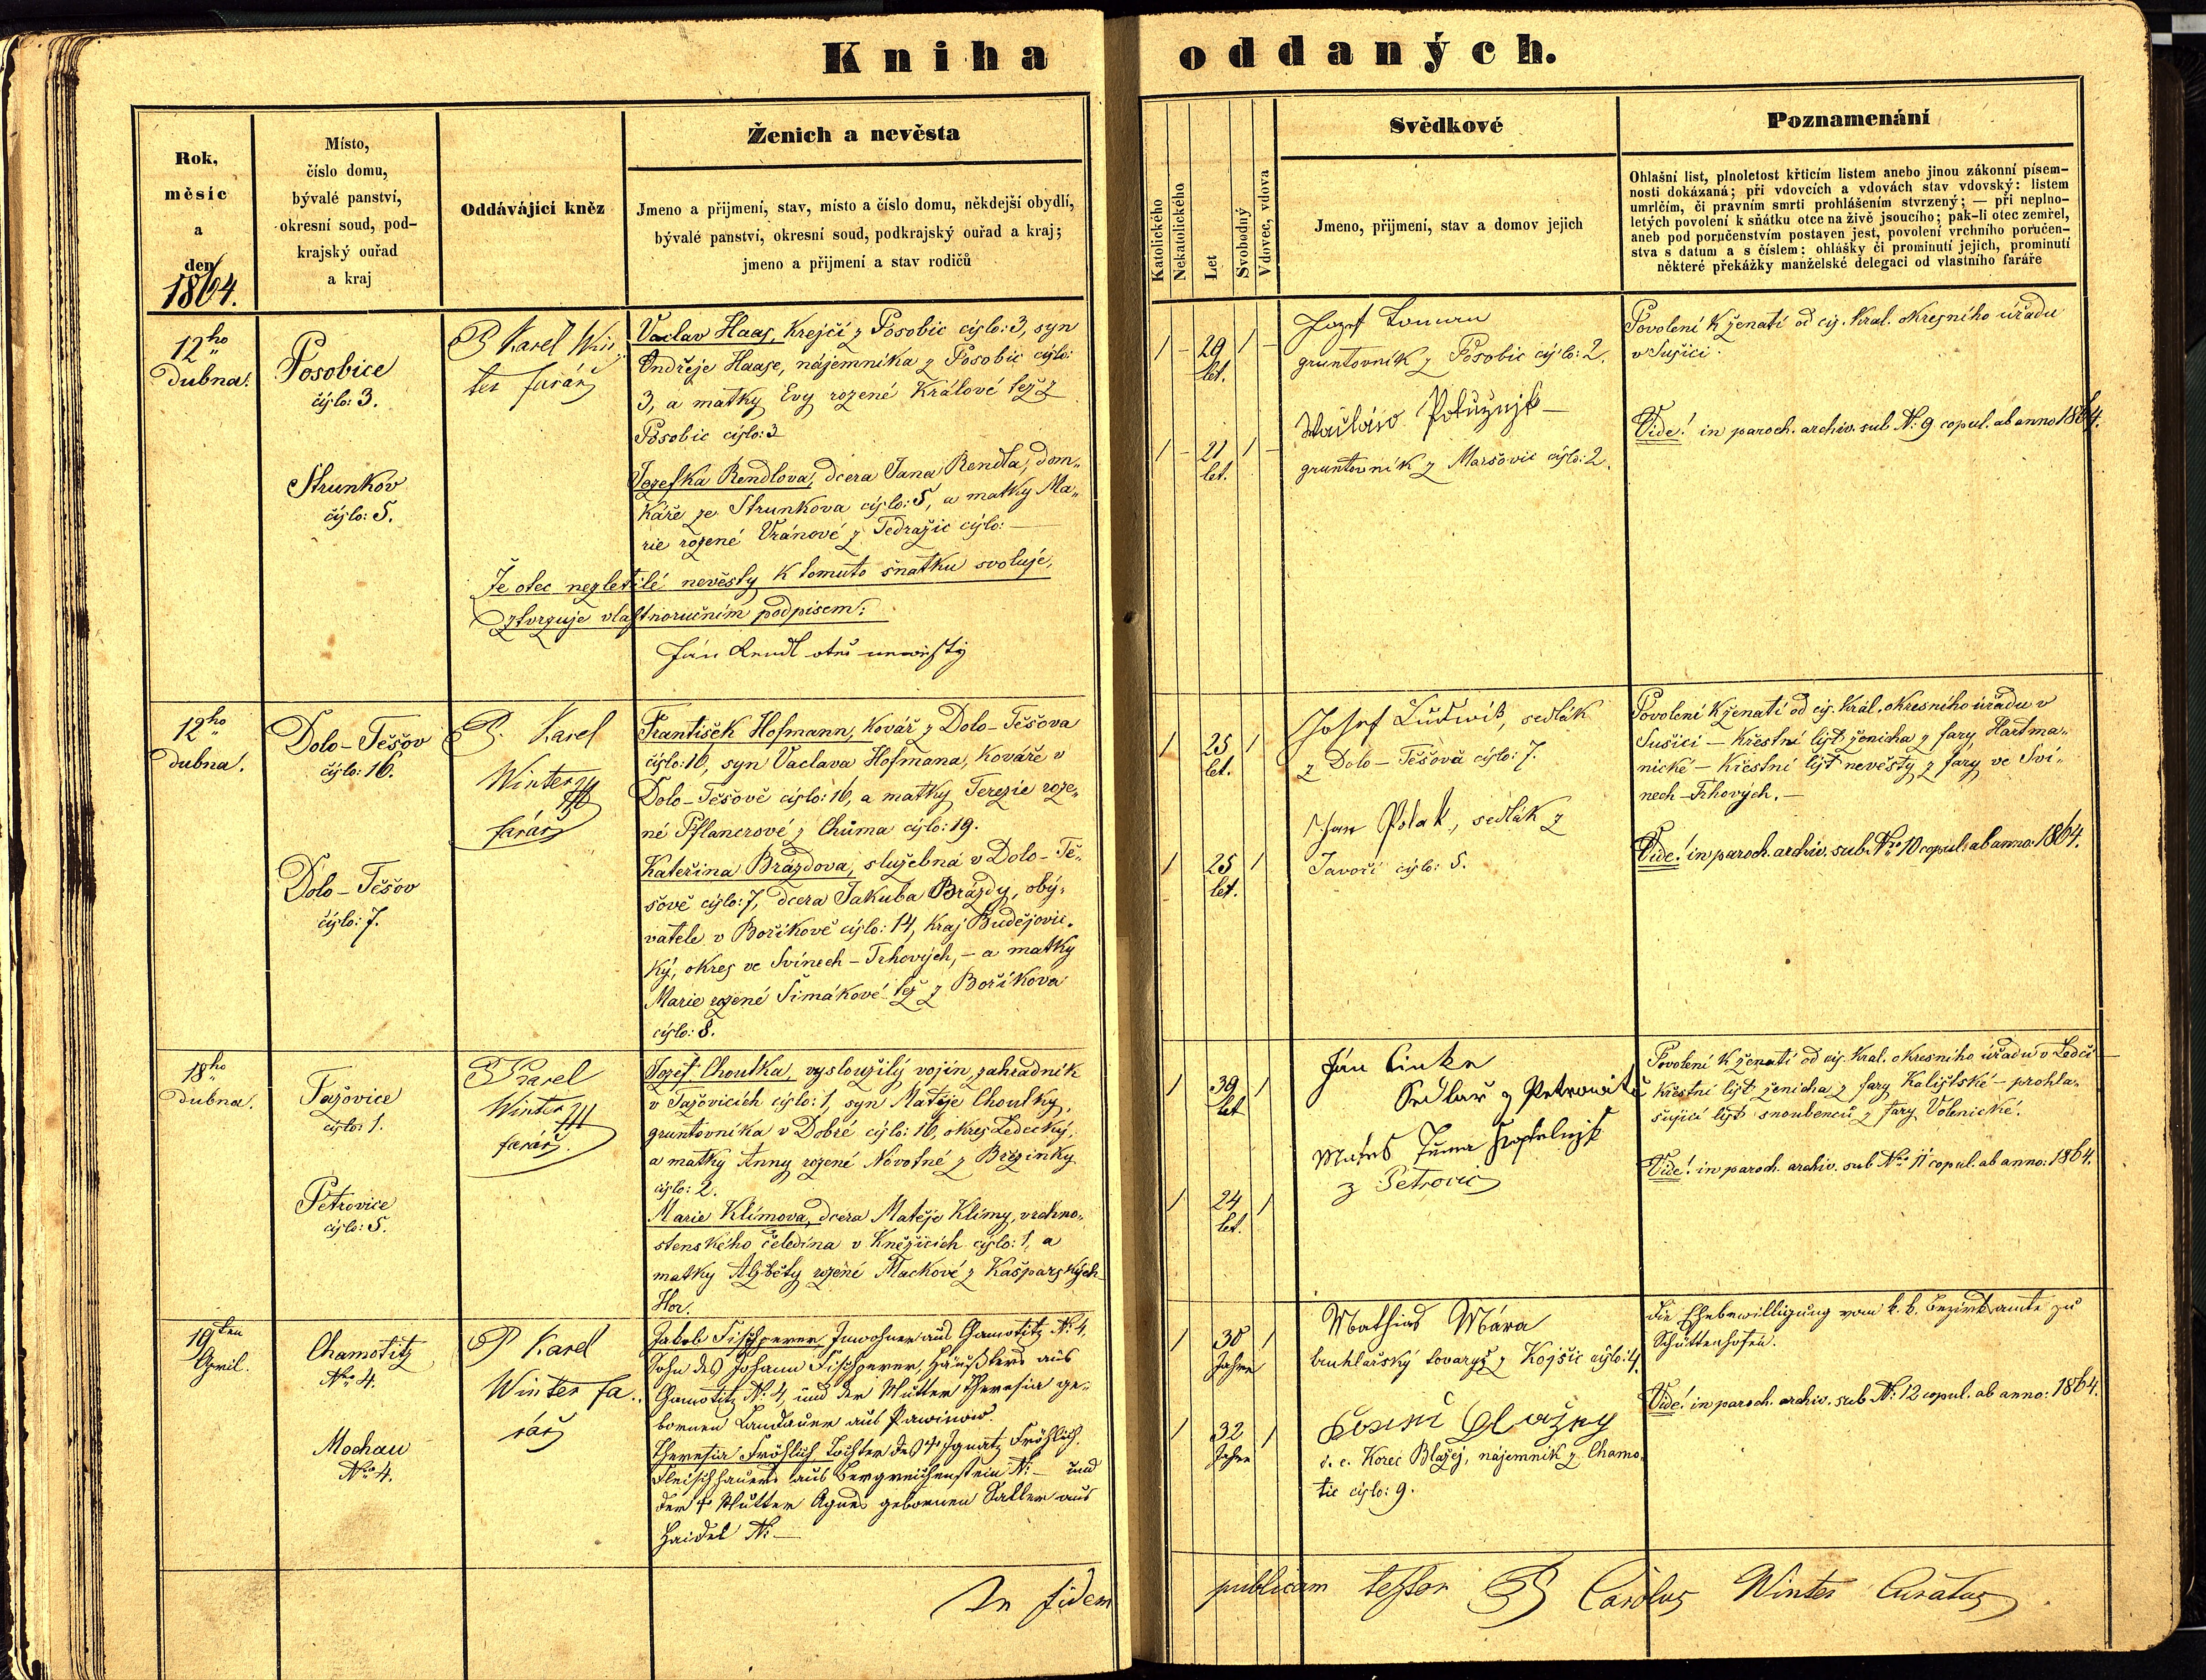 Kniha oddaných.
Rok,
měsíc
a
den
1864.
Místo,
číslo domu,
bývalé panství,
okresní soud, pod-
krajský ouřad
a kraj
Oddávájící kněz
Ženich a nevěsta
Jmeno a přijmení, stav, místo a číslo domu, někdejší obydlí,
bývalé panství, okresní soud, podkrajský ouřad a kraj;
jmeno a přijmení a stav rodičů
Katolického
Nekatolického
Let
Svobodný
Vdovec, vdova
Svědkové
Jmeno, přijmení, stav a domov jejich
Poznamenání
Ohlašní list, plnoletost křticím listem anebo jinou zákonní písem-
nosti dokázaná; při vdovcích a vdovách stav vdovský: listem
umrlčím, či právním smrti prohlášením stvrzený; — při neplno-
letých povolení k sňátku otce na živě jsoucího; pak-li otec zemřel,
aneb pod poručenstvím postaven jest, povolení vrchního poručen-
stva s datum a s číslem: ohlášky či prominutí jejich, prominutí
některé překážky manželské delegaci od vlastního faráře
12ho
Dubna.
Posobice
čýslo: 3.
Strunkov
čýslo: 5.
P Karel Win
ter farář
Vaclav Haas, Krejčí z Posobic cýslo: 3, syn
Ondřeje Haase, nájemníka z Posobic cýslo:
3, a matky Evy rozené Králové též z
Posobic cýslo: 3
Jozefka Rendlova, dcera Jana Rendla, dom„
káře ze Strunkova cýslo: 5, a matky Ma„
rie rozené Vránové z Tedražic cýslo: —
Že otec nezletilé nevěsty k tomuto sňatku svoluje,
ztvrzuje vlastnoručním podpisem:
Ján Rendl otec newěsty
1 – 29 1 –
let.
1 – 21 1 –
let.
Jozef Toman
gruntovník z Posobic cýslo: 2.
Wácláw
gruntovník z Maršovic cýslo: 2.
Povolení k ženatí od cýs. král. okresního úřadu
v Sušici.
Vide! in paroch. archiv. sub N: 9 copul. ab anno 1864.
12ho
Dubna.
Dolo-Těšov
čýslo: 16.
Dolo-Těšov
čýslo: 7.
P. Karel
Winter
farář
František Hofmann, Kovář z Dolo-Těšova
čýslo: 16, syn Vaclava Hofmana, Kováře v
Dolo-Těšově cýslo: 16, a matky Terezie roze„
né Pflancrové z Chůma cýslo: 19.
Kateřina Brázdova, služebná v Dolo-Tě„
šově cýslo: 7, dcera Jakuba Brázdy, obý„
vatele v Boříkově cýslo: 14, kraj Budějovic„
ký, okres ve Svinech-Trhových, – a matky
Marie rozené Šimákové též z Boříkova
cýslo: 8.
1 25 1
let.
1 25 1
let.
Josef Ludwik, sedlák
z Dolo-Těšova cýslo: 7.
Jan Polak, sedlák z
Javoří cýslo: 5.
Povolení k ženatí od cýs. král. okresního úřadu v
Sušici – Křestní lýst ženicha z fary Hartma„
nické – Křestní lýst nevěsty z fary ve Svi„
nech-Trhových. —
Vide! in paroch. archiv. sub Nro 10 copul. ab anno: 1864.
18ho
Dubna.
Tažovice
cýslo: 1.
Petrovice
cýslo: 5.
P Karel
Winter
farář.
Jozef Choutka, vysloužilý vojín, zahradník
v Tažovicích cýslo: 1, syn Matěje Choutky,
gruntovníka v Dobré cýslo: 16, okres Ledecký,
a matky Anny rozené Novotné z Březinky
cýslo: 2.
Marie Klímova, dcera Matěje Klímy, vrchno„
stenského čeledína v Kněžicích cýslo: 1, a
matky Alžběty rozené Mackové z Kašparských
Hor.
1 39 1
let
1 24 1
let.
Ján Cinke
Sedlař z Petrowitc
Matěs Tuma
z Petrovic
Povolení k ženatí od cýs. král. okresního úřadu v Ledči
Křestní lýst ženicha z fary Kalištské – prohla„
šující lýst snoubenců z fary Volenické.
Vide! in paroch. archiv. sub Nro 11 copul. ab anno: 1864.
19ten
April.
Chamotitz
Nro 4.
Mochau
Nro 4.
P Karel
Winter fa„
rář
Jakob Fischperer, Inwohner aus Chamotitz N: 4,
Sohn des Johann Fischperer, Häußlers aus
Chamotitz N: 4, und der Mutter Theresia ge„
bornen Landauer aus Pawinow.
Theresia Fröhlich Tochter des † Ignatz Fröhlich,
Fleischhauers aus Bergreichenstein N: — und
der † Mutter Agnes gebornen Sattler aus
Haidl N: —
1 30 1
Jahre
1 32 1
Jahre
Mathias Mára
truhlařský tovaryš z Kojšic cýslo: 4.
i. e. Korec Blažej, nájemník z Chamo„
tic cýslo: 9.
die Ehebewilligung vom k. k. Bezirksamte zu
Schüttenhofen.
Vide! in paroch. archiv. sub N: 12 copul. ab anno: 1864.
In fidem publicam testor P Carolus Winter Curatus